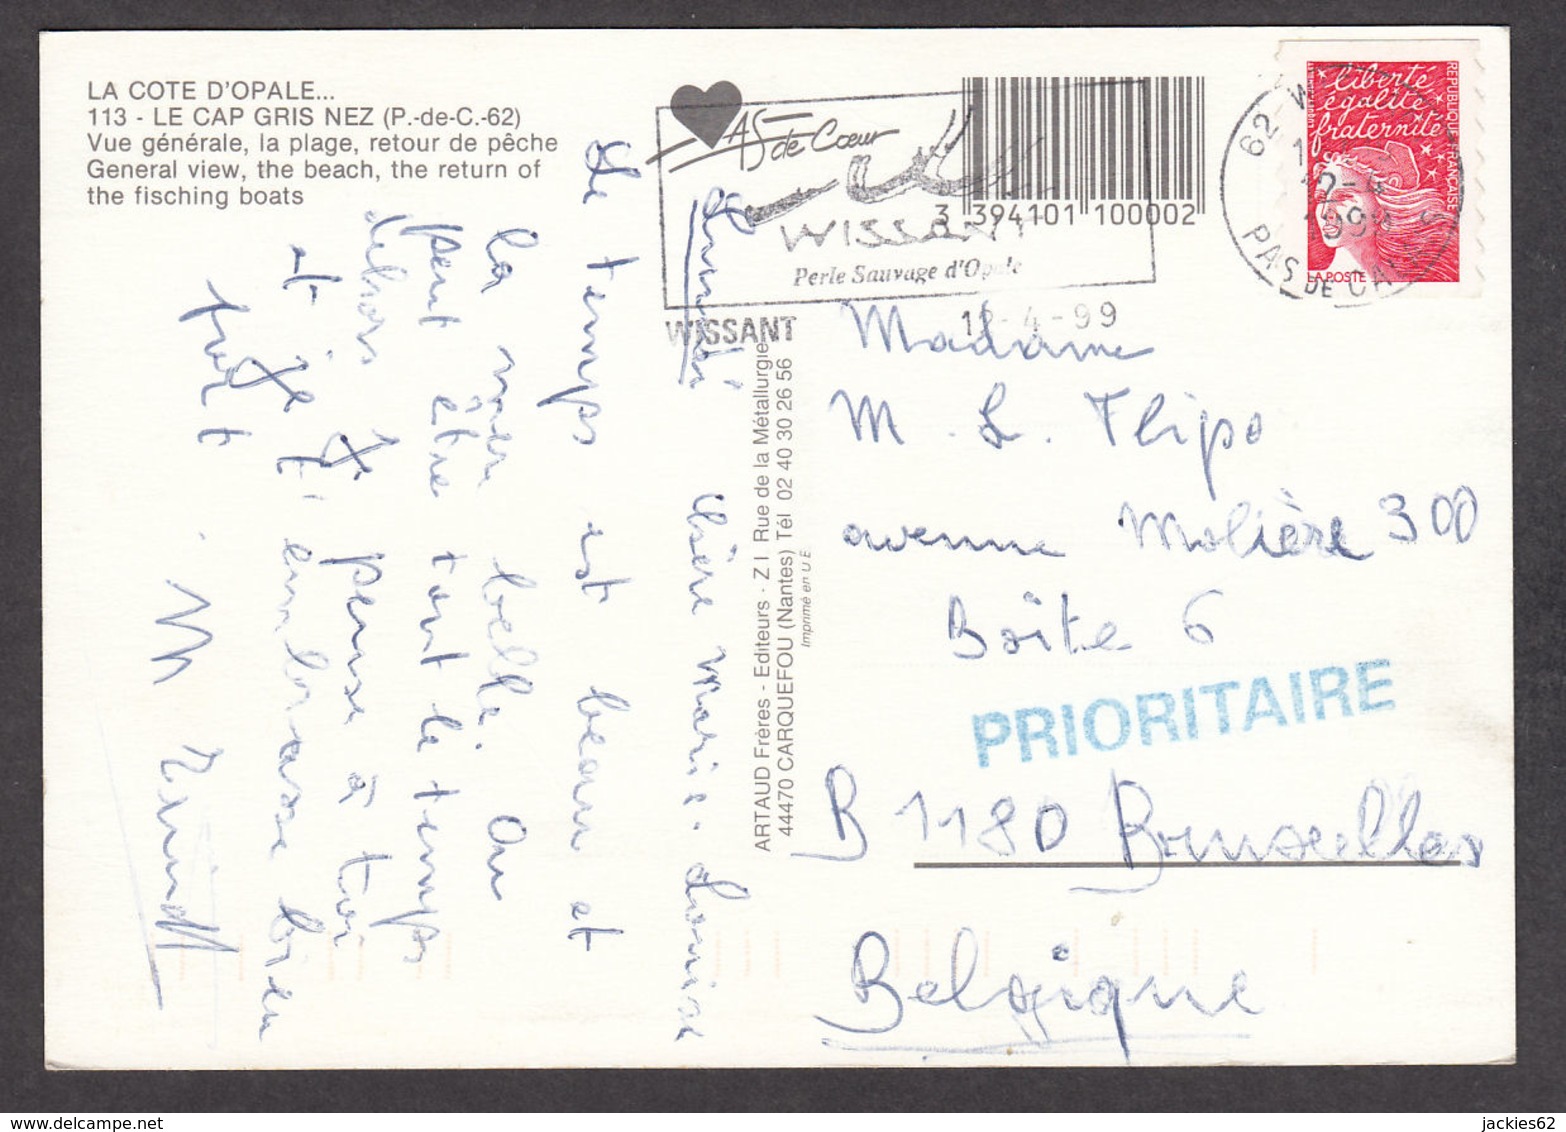 LA COTE D'OPALE...
113 - LE CAP GRIS NEZ (P.-de-C.-62)
Vue générale, la plage, retour de pêche
General view, the beach, the return of
the fisching boats
AS de Cœur
WISSANT
Perle Sauvage d'Opale
WISSANT
12-4-99
3 394101 100002
62 W
12-4
1999
PAS DE CALAIS
liberté
égalité
fraternité
RÉPUBLIQUE FRANÇAISE
LA POSTE
ARTAUD Frères - Editeurs - Z I Rue de la Métallurgie
44470 CARQUEFOU (Nantes) Tél 02 40 30 26 56
Imprimé en U E
chère Marie-Louise
Le temps est beau et
la mer belle. On
peut être tout le temps
dehors. Je pense à toi
et je t'embrasse bien
fort.
Madame
M. L. Flipo
avenue Molière 300
Boîte 6
PRIORITAIRE
B 1180 Bruxelles
Belgique
jackies62